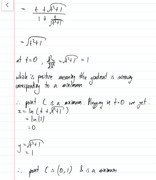 <
= t + √t²+1
1 + t/√t²+1
= √t²+1
at t=0, = √0²+1 = 1
which is positive meaning the gradient is
corresponding to a minimum
∴ point C is a minimum. Plugging in t=0 we get
x = ln(t + √t²+1)
= ln(1)
= 0
y = √t²+1
= 1
∴ point C is (0,1) & is a minimum